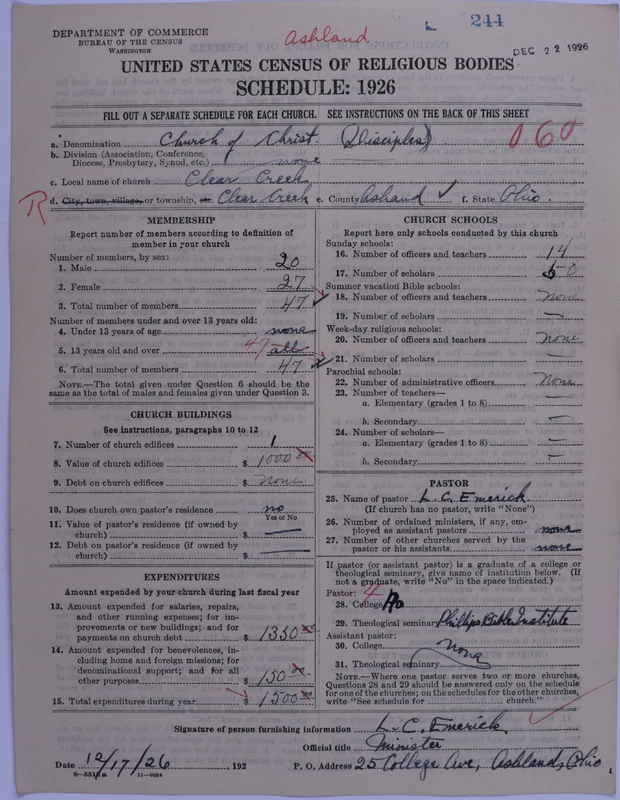 DEPARTMENT OF COMMERCE
BUREAU OF THE CENSUS
WASHINGTON
Ashland
244
DEC 22 1926
UNITED STATES CENSUS OF RELIGIOUS BODIES
SCHEDULE: 1926
FILL OUT A SEPARATE SCHEDULE FOR EACH CHURCH. SEE INSTRUCTIONS ON THE BACK OF THIS SHEET
a. Denomination Church of Christ. (Disciples) 060
b. Division (Association, Conference, Diocese, Presbytery, Synod, etc.) none
c. Local name of church Clear Creek
R
d. City, town, village, or township, etc. Clear Creek e. County Ashand ✓ f. State Ohio.
MEMBERSHIP
Report number of members according to definition of member in your church
Number of members, by sex:
1. Male 20
2. Female 27
3. Total number of members 47 ✓
Number of members under and over 13 years old:
4. Under 13 years of age none
5. 13 years old and over 47 all
6. Total number of members 47 ✓
NOTE.—The total given under Question 6 should be the same as the total of males and females given under Question 3.
CHURCH BUILDINGS
See instructions, paragraphs 10 to 12
7. Number of church edifices 1
8. Value of church edifices $ 1000
9. Debt on church edifices $ None
10. Does church own pastor's residence no
Yes or No
11. Value of pastor's residence (if owned by church) $ —
12. Debt on pastor's residence (if owned by church) $ —
EXPENDITURES
Amount expended by your church during last fiscal year
13. Amount expended for salaries, repairs, and other running expenses; for improvements or new buildings; and for payments on church debt $ 1350
14. Amount expended for benevolences, including home and foreign missions; for denominational support; and for all other purposes $ 150
15. Total expenditures during year $ 1500
CHURCH SCHOOLS
Report here only schools conducted by this church
Sunday schools:
16. Number of officers and teachers 14
17. Number of scholars 50
Summer vacation Bible schools:
18. Number of officers and teachers None
19. Number of scholars —
Week-day religious schools:
20. Number of officers and teachers None
21. Number of scholars —
Parochial schools:
22. Number of administrative officers None
23. Number of teachers—
a. Elementary (grades 1 to 8) —
b. Secondary —
24. Number of scholars—
a. Elementary (grades 1 to 8) —
b. Secondary —
PASTOR
25. Name of pastor L. C. Emerick
(If church has no pastor, write "None")
26. Number of ordained ministers, if any, employed as assistant pastors none
27. Number of other churches served by the pastor or his assistants none
If pastor (or assistant pastor) is a graduate of a college or theological seminary, give name of institution below. (If not a graduate, write "No" in the space indicated.)
Pastor: 4
28. College No
29. Theological seminary Phillips Bible Institute
Assistant pastor:
30. College none
31. Theological seminary
NOTE.—Where one pastor serves two or more churches, Questions 28 and 29 should be answered only on the schedule for one of the churches; on the schedules for the other churches, write "See schedule for ______ church."
Signature of person furnishing information L. C. Emerick
Official title Minister
Date 12/17/26, 192 P. O. Address 25 College Ave, Ashland, Ohio
11—9054